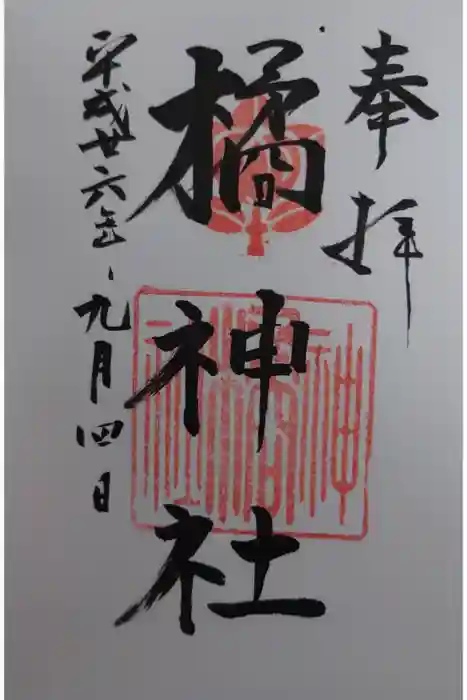 奉拝
橘神社
平成廿六年、九月四日